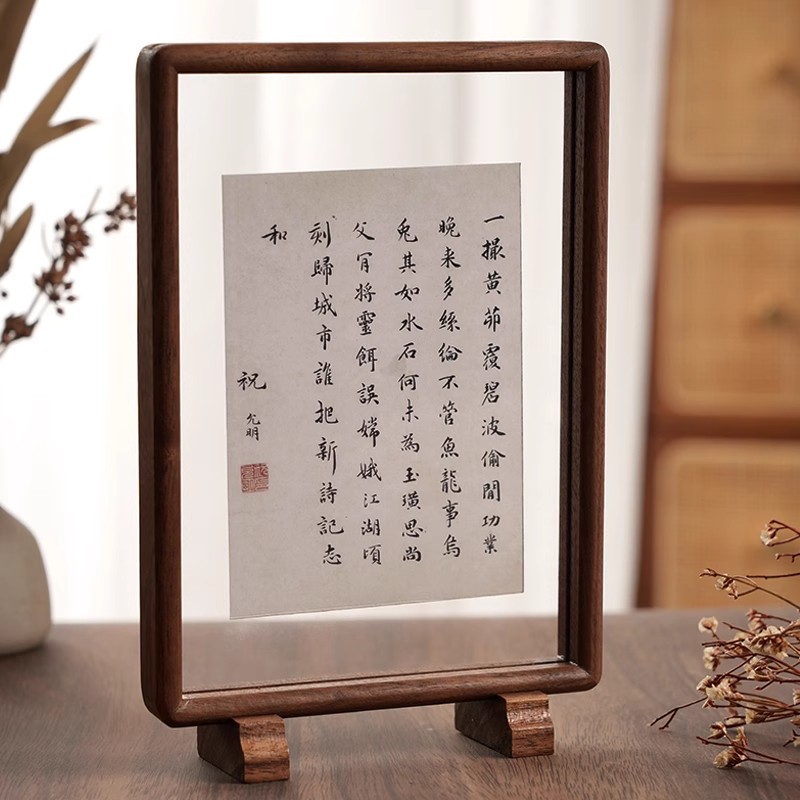 一撮黄茆覆碧波偷閒功業
晚来多絲綸不管魚龍事烏
兔其如水石何未為玉璜思尚
父肎将靈餌誤嫦娥江湖頃
刻歸城市誰把新詩記志
和
祝允明